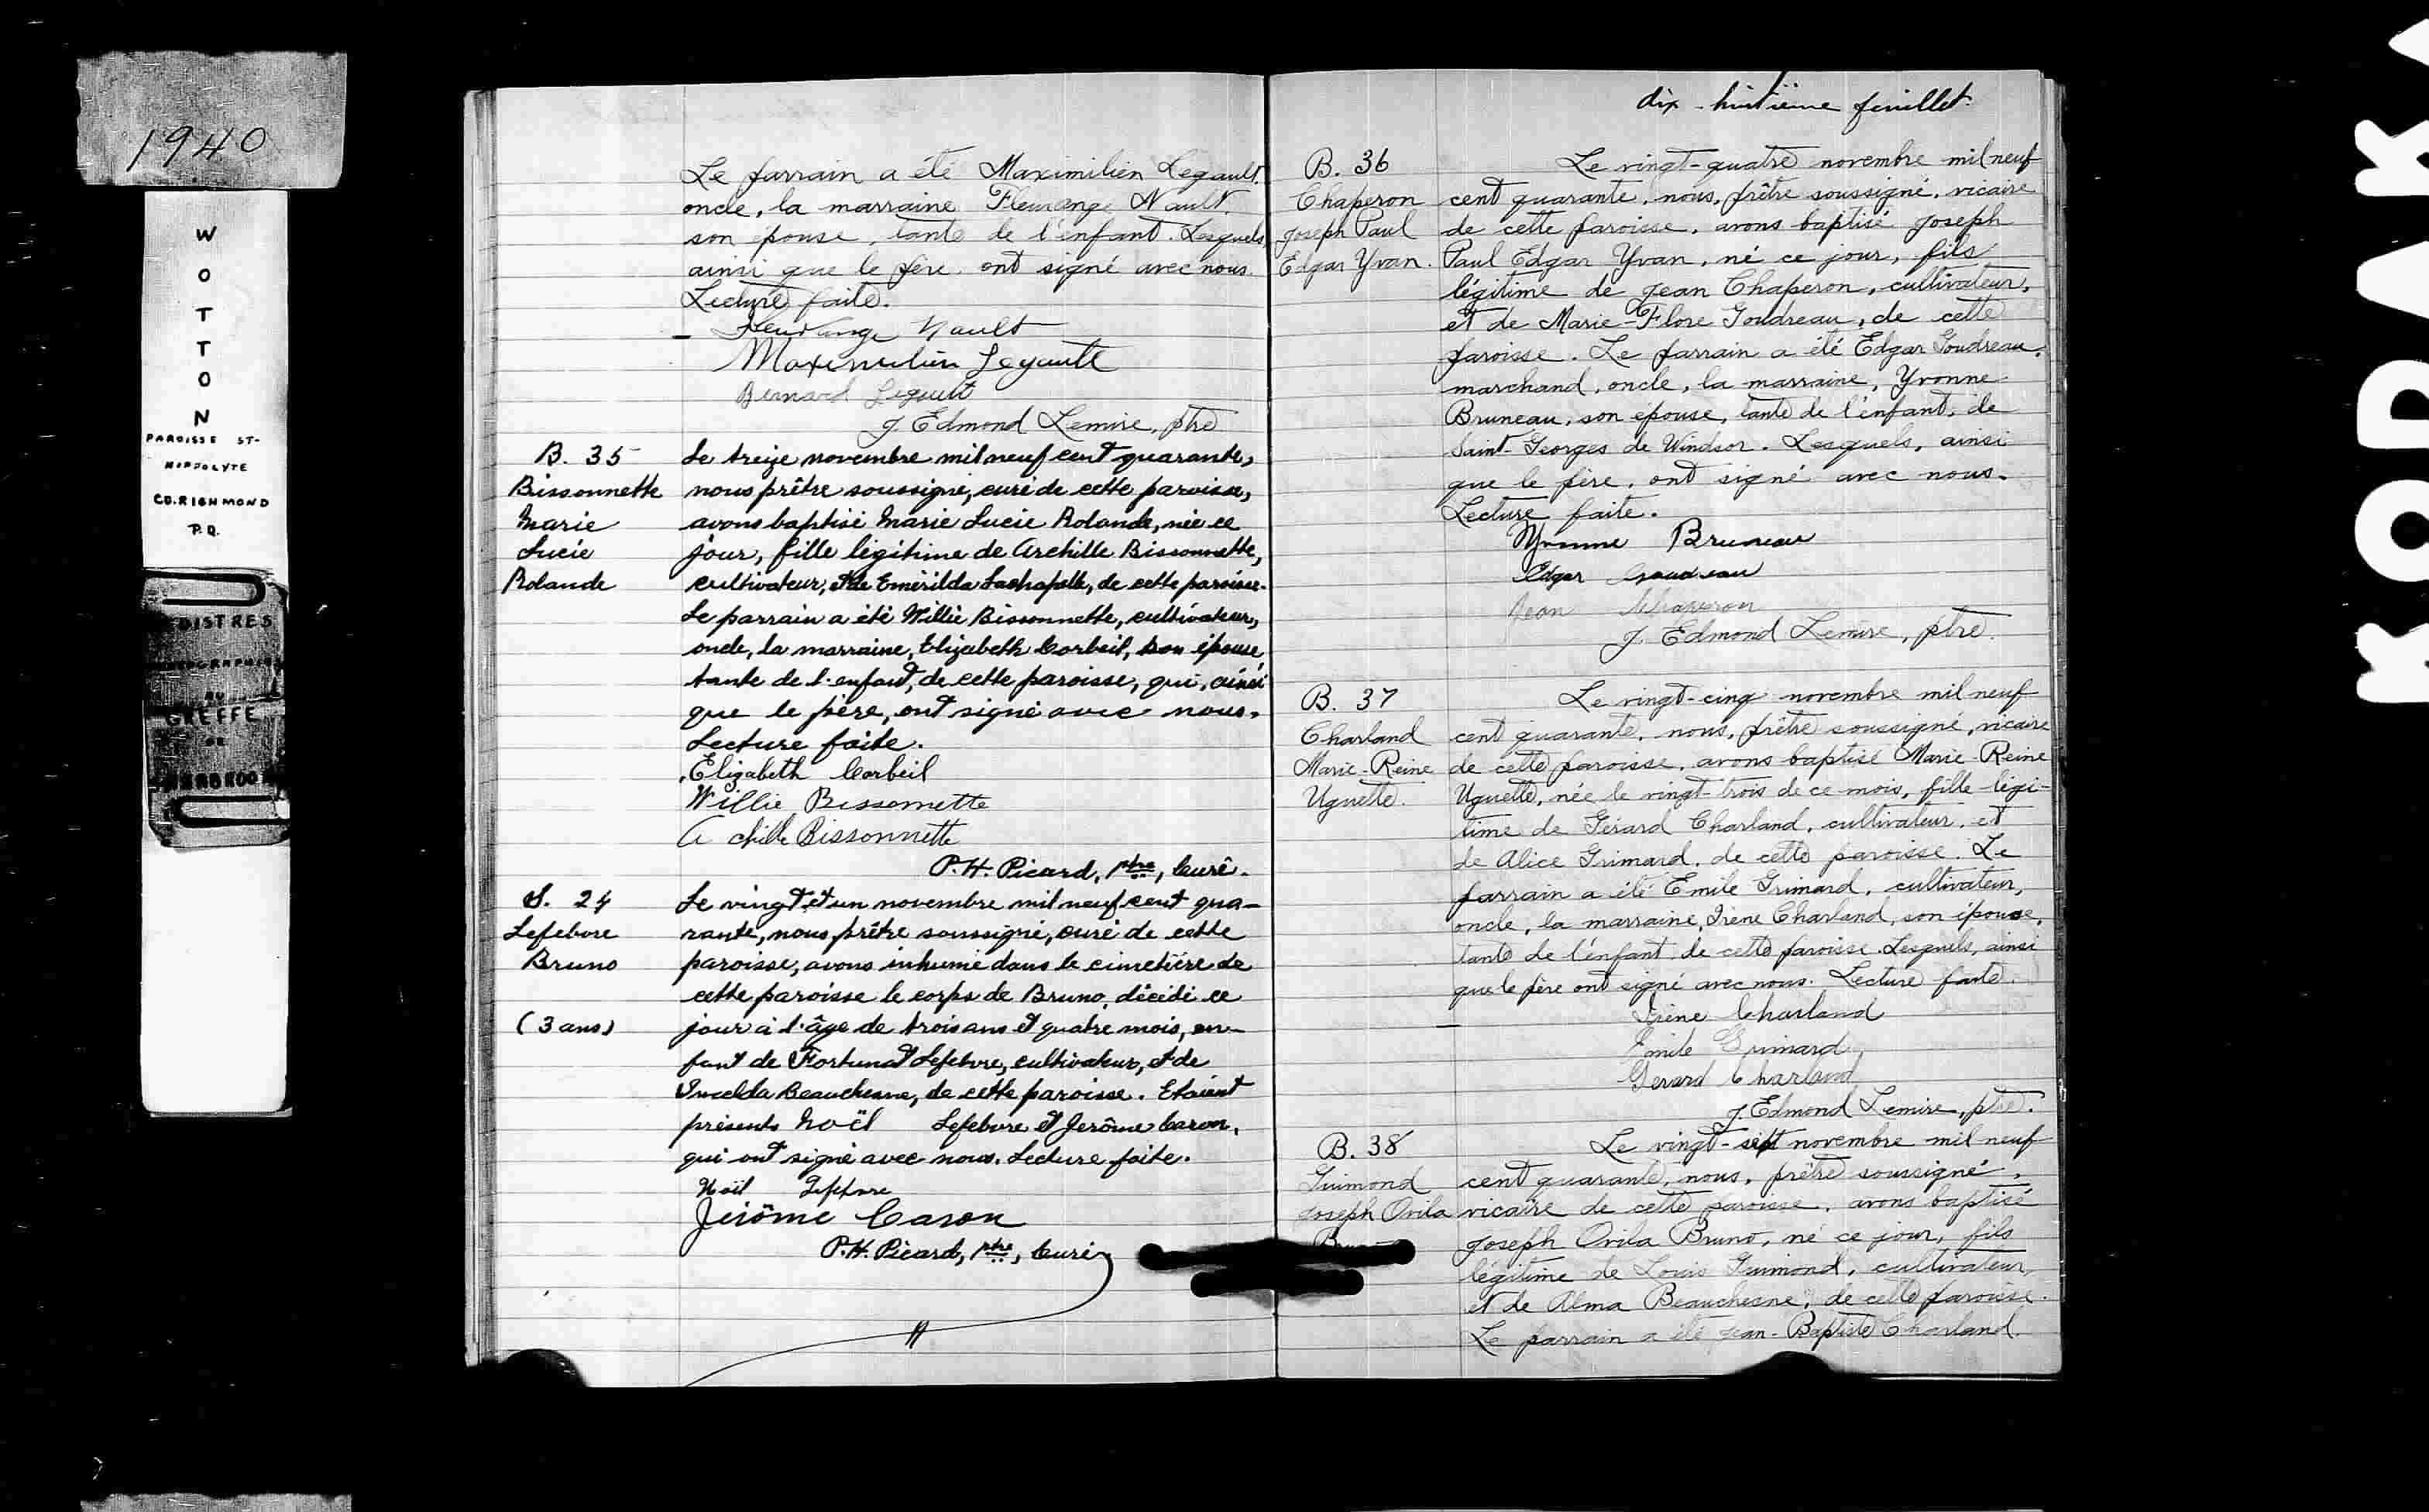 1940
W
O
T
T
O
N
PAROISSE ST-
HIPPOLYTE
CO. RICHMOND
P.Q.
GREFFE
Le parrain a été Maximilien Legault,
oncle, la marraine Fleurange Nault,
son épouse, tante de l'enfant. Lesquels,
ainsi que le père, ont signé avec nous.
Lecture faite.
Fleurange Nault
Maximilien Legault
Bernard Legault
J. Edmond Lemire, ptre
B. 35
Bissonnette
Marie
Lucie
Rolande
Le treize novembre mil neuf cent quarante,
nous prêtre soussigné, curé de cette paroisse,
avons baptisé Marie Lucie Rolande, née ce
jour, fille légitime de Archille Bissonnette,
cultivateur, et de Emérilda Lachapelle, de cette paroisse.
Le parrain a été Willie Bissonnette, cultivateur,
oncle, la marraine, Elizabeth Corbeil, son épouse,
tante de l'enfant, de cette paroisse, qui, ainsi
que le père, ont signé avec nous.
Lecture faite.
Elizabeth Corbeil
Willie Bissonnette
Achille Bissonnette
P.H. Picard, ptre, curé.
S. 24
Lefebvre
Bruno
(3 ans)
Le vingt et un novembre mil neuf cent qua-
rante, nous prêtre soussigné, curé de cette
paroisse, avons inhumé dans le cimetière de
cette paroisse le corps de Bruno, décédé ce
jour à l'âge de trois ans et quatre mois, en-
fant de Fortunat Lefebvre, cultivateur, et de
Beauchesne, de cette paroisse. Etaient
présents Noël Lefebvre et Jerôme Caron,
qui ont signé avec nous. Lecture faite.
Noël Lefebvre
Jérôme Caron
P.H. Picard, ptre, curé
dix-huitième feuillet.
B. 36
Chaperon
Joseph Paul
Edgar Yvan.
Le vingt-quatre novembre mil neuf
cent quarante, nous, prêtre soussigné, vicaire
de cette paroisse, avons baptisé Joseph
Paul Edgar Yvan, né ce jour, fils
légitime de Jean Chaperon, cultivateur,
et de Marie-Flore Goudreau, de cette
paroisse. Le parrain a été Edgar Goudreau,
marchand, oncle, la marraine, Yvonne
Bruneau, son épouse, tante de l'enfant, de
Saint-Georges de Windsor. Lesquels, ainsi
que le père, ont signé avec nous.
Lecture faite.
Yvonne Bruneau
Edgar Goudreau
Jean Chaperon
J. Edmond Lemire, ptre.
B. 37
Charland
Marie-Reine
Uguette.
Le vingt-cinq novembre mil neuf
cent quarante, nous, prêtre soussigné, vicaire
de cette paroisse, avons baptisé Marie-Reine
Uguette, née le vingt-trois de ce mois, fille légi-
time de Gérard Charland, cultivateur, et
de Alice Grimard, de cette paroisse. Le
parrain a été Emile Grimard, cultivateur,
oncle, la marraine, Irène Charland, son épouse,
tante de l'enfant, de cette paroisse. Lesquels, ainsi
que le père ont signé avec nous. Lecture faite.
Irène Charland
Emile Grimard
Gerard Charland
J. Edmond Lemire, ptre.
B. 38
Guimond
Joseph Ovila
Le vingt-sept novembre mil neuf
cent quarante, nous, prêtre soussigné,
vicaire de cette paroisse, avons baptisé
Joseph Ovila Bruno, né ce jour, fils
légitime de Louis Guimond, cultivateur,
et de Alma Beauchesne, de cette paroisse.
Le parrain a été Jean-Baptiste Charland.
KODAK